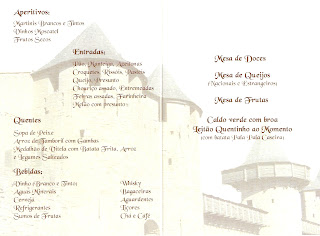 Aperitivos:
Martinis Brancos e Tintos
Vinhos Moscatel
Frutos Secos
Entradas:
Pão, Manteiga, Azeitonas
Croquetes, Rissóis, Pasteis
Queijo, Presunto
Chouriço assado, Entremeadas
Febras assadas, Farinheira
Melão com presunto
Quentes
Sopa de Peixe
Arroz de Tamboril com Gambas
Medalhão de Vitela com Batata Frita, Arroz
e Legumes Salteados
Bebidas:
Vinho Branco e Tintos
Aguas Minerais
Cerveja
Refrigerantes
Sumos de Frutas
Whisky
Bagaceiras
Aguardentes
Licores
Chá e Café
Mesa de Doces
Mesa de Queijos
(Nacionais e Estrangeiros)
Mesa de Frutas
Caldo verde com broa
Leitão Quentinho ao Momento
(com batata Pala Pala Caseira)